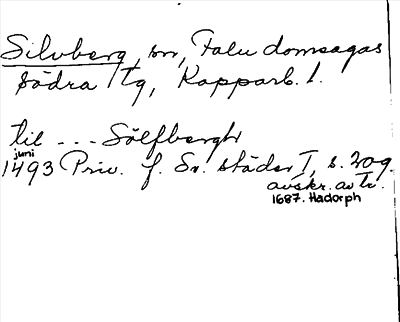 Silvberg, sn, Falu domsagas
södra tg, Kopparb. l.
til ... Sölfbergh
juni
1493 Priv. f. Sv. städer I, s. 209.
avskr. av tr.
1687. Hadorph